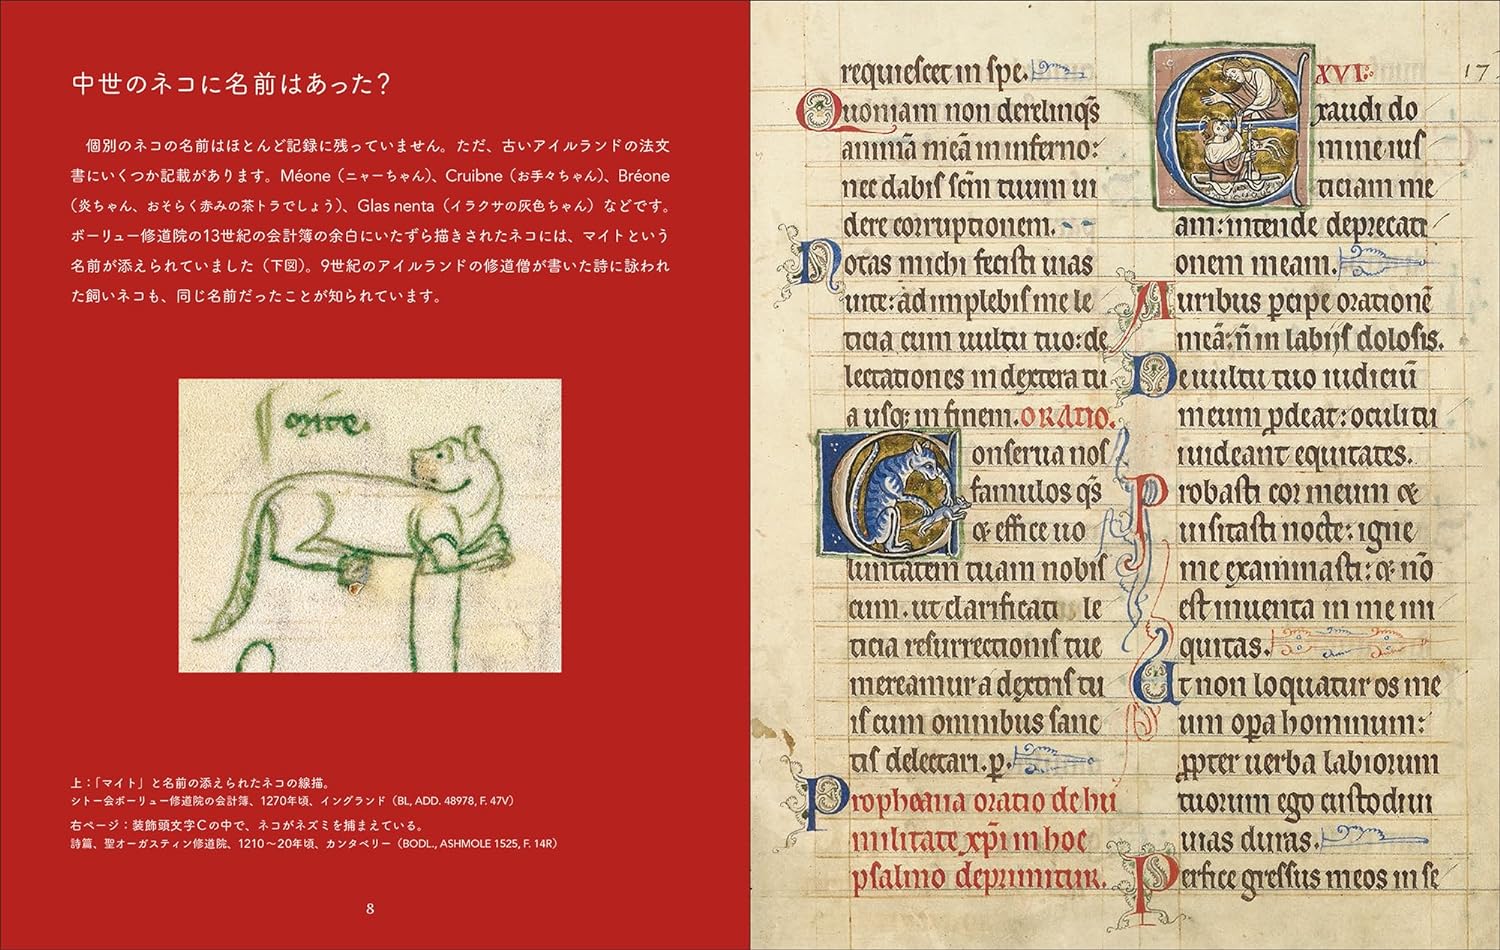 中世のネコに名前はあった?
個別のネコの名前はほとんど記録に残っていません。ただ、古いアイルランドの法文
書にいくつか記載があります。Méone(ニャーちゃん)、Cruibne(お手々ちゃん)、Bréone
(炎ちゃん、おそらく赤みの茶トラでしょう)、Glas nenta(イラクサの灰色ちゃん)などです。
ボーリュー修道院の13世紀の会計簿の余白にいたずら描きされたネコには、マイトという
名前が添えられていました(下図)。9世紀のアイルランドの修道僧が書いた詩に詠われ
た飼いネコも、同じ名前だったことが知られています。
mite.
上:「マイト」と名前の添えられたネコの線描。
シトー会ボーリュー修道院の会計簿、1270年頃、イングランド(BL, ADD. 48978, F. 47V)
右ページ:装飾頭文字Cの中で、ネコがネズミを捕まえている。
詩篇、聖オーガスティン修道院、1210〜20年頃、カンタベリー(BODL., ASHMOLE 1525, F. 14R)
8
requiescet in spe.
Quoniam non derelinq̄s
animā meā in inferno:
nec dabis sc̄m tuum ui
dere corruptionem.
Notas michi fecisti uias
uite: ad implebis me le
ticia cum uultu tuo: de
lectationes in dextera tu
a usq; in finem. ORATIO.
Conserua nos
famulos q̄s
& effice uo
luntatem tuam nobis
cum. ut clarificati le
ticia resurrectionis tue
mereamur a dextris tu
is cum omnibus sanc
tis delectari. p.
Prophetia oratio de hu
militate xp̄i in hoc
psalmo deprimitur.
XVI.
17
Exaudi do
mine ius
ticiam me
am: intende deprecati
onem meam.
Auribus p̄cipe orationē
meā: n̄ in labiis dolosis.
De uultu tuo iudiciū
meum p̄deat: oculi tu
i uideant equitates.
Probasti cor meum &
uisitasti nocte: igne
me examinasti: & nō
est inuenta in me ini
quitas.
Ut non loquatur os me
um op̄a hominum:
p̄pter uerba labiorum
tuorum ego custodiui
uias duras.
Perfice gressus meos in se